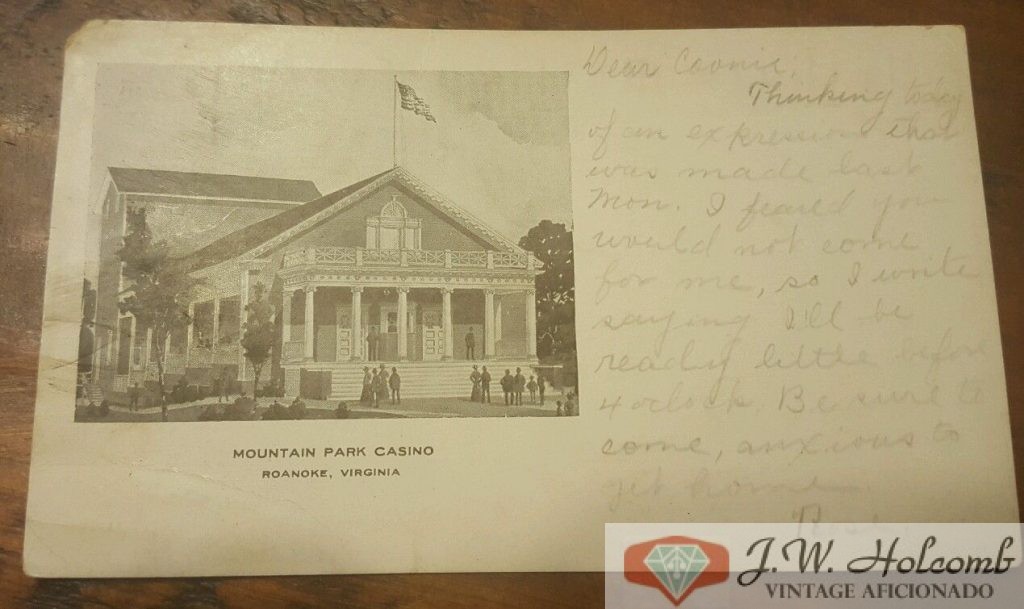 Dear Connie,
Thinking today
of an expression that
was made last
Mon. I feared you
would not come
for me, so I write
saying I'll be
ready little before
4 oclock. Be sure to
come, anxious to
get home
MOUNTAIN PARK CASINO
ROANOKE, VIRGINIA
J.W. Holcomb
VINTAGE AFICIONADO